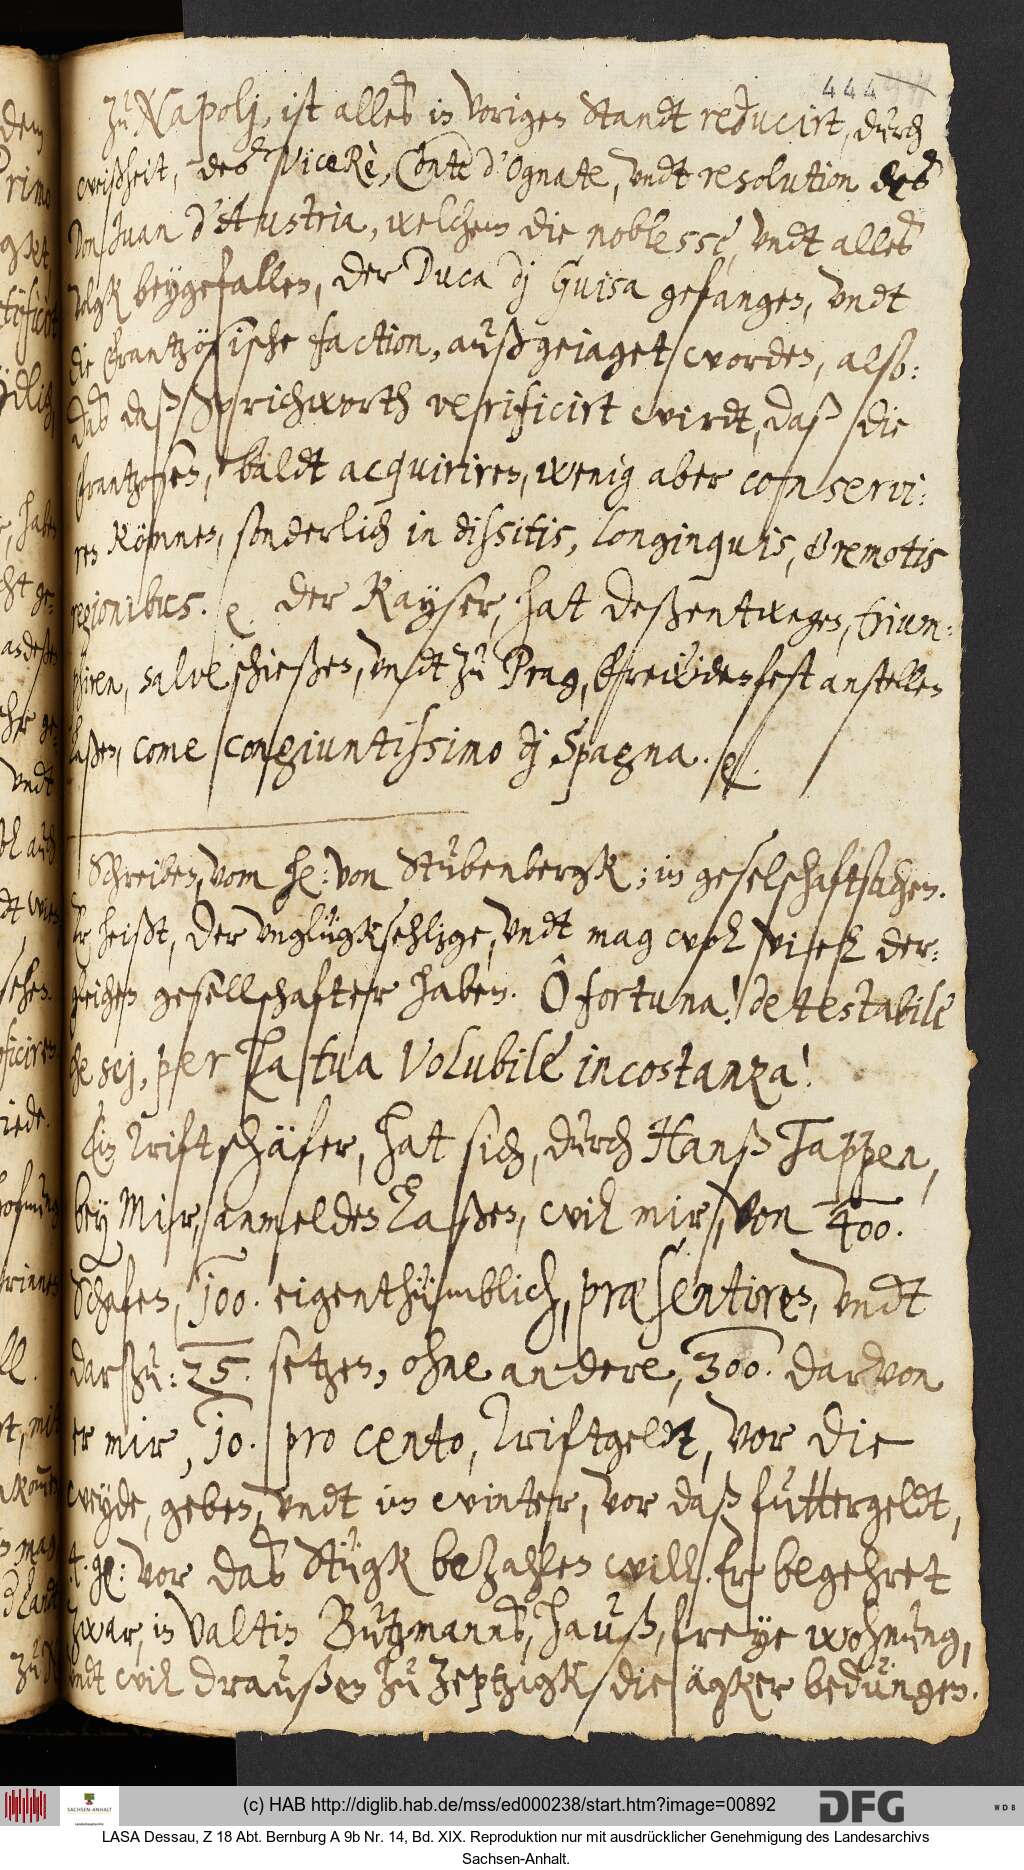 444
Zu Napolj, ist alles in vorigen Standt reducirt, durch
weißheit, des Vice Rè, Conte d'Ognate, undt resolution des
Don Juan d'Austria, welchem die noblesse, undt alles
volgk beygefallen, der Duca dj Guisa gefangen, undt
die Frantzösische faction, außgejaget worden, also:
das daß Sprichworth verificirt wirdt, daß die
frantzosen, baldt acquiriren, wenig aber conservi:
ren können, sonderlich in dissitis, longinquis, & remotis
regionibus. Der Kayser, hat deßentwegen, trium:
phiren, salve schießen, undt zu Prag, Frewdenfest anstellen
laßen, come congiuntissimo dj Spagna.
Schreiben, vom H: von Stubenbergk; in geselschaftsachen.
Er heißt, der unglügksehlige, undt mag wol viel der:
gleichen gesellschafter haben. Ô fortuna! detestabile
che sej, per la tua volubile incostanza!
Ein Triftschäfer, hat sich, durch Hanß Tappen,
bey Mir, anmelden laßen, wil mir, von 400.
Schafen, 100. eigenthümblich, præsentiren, undt
darzu: 25. setzen, ohne andere, 300. darvon
er mir, 10. pro cento, Triftgeldt, vor die
weyde, geben, undt im winter, vor daß futtergeldt,
4. gl: vor das Stügk bezahlen will. Er begehret
zwar, in Valtin Butzmanns, hauß, freye wohnung,
undt wil draußen zu Zeptzigk, die ägker bedüngen.
(c) HAB http://diglib.hab.de/mss/ed000238/start.htm?image=00892
SACHSEN-ANHALT
DFG
WDB
LASA Dessau, Z 18 Abt. Bernburg A 9b Nr. 14, Bd. XIX. Reproduktion nur mit ausdrücklicher Genehmigung des Landesarchivs
Sachsen-Anhalt.